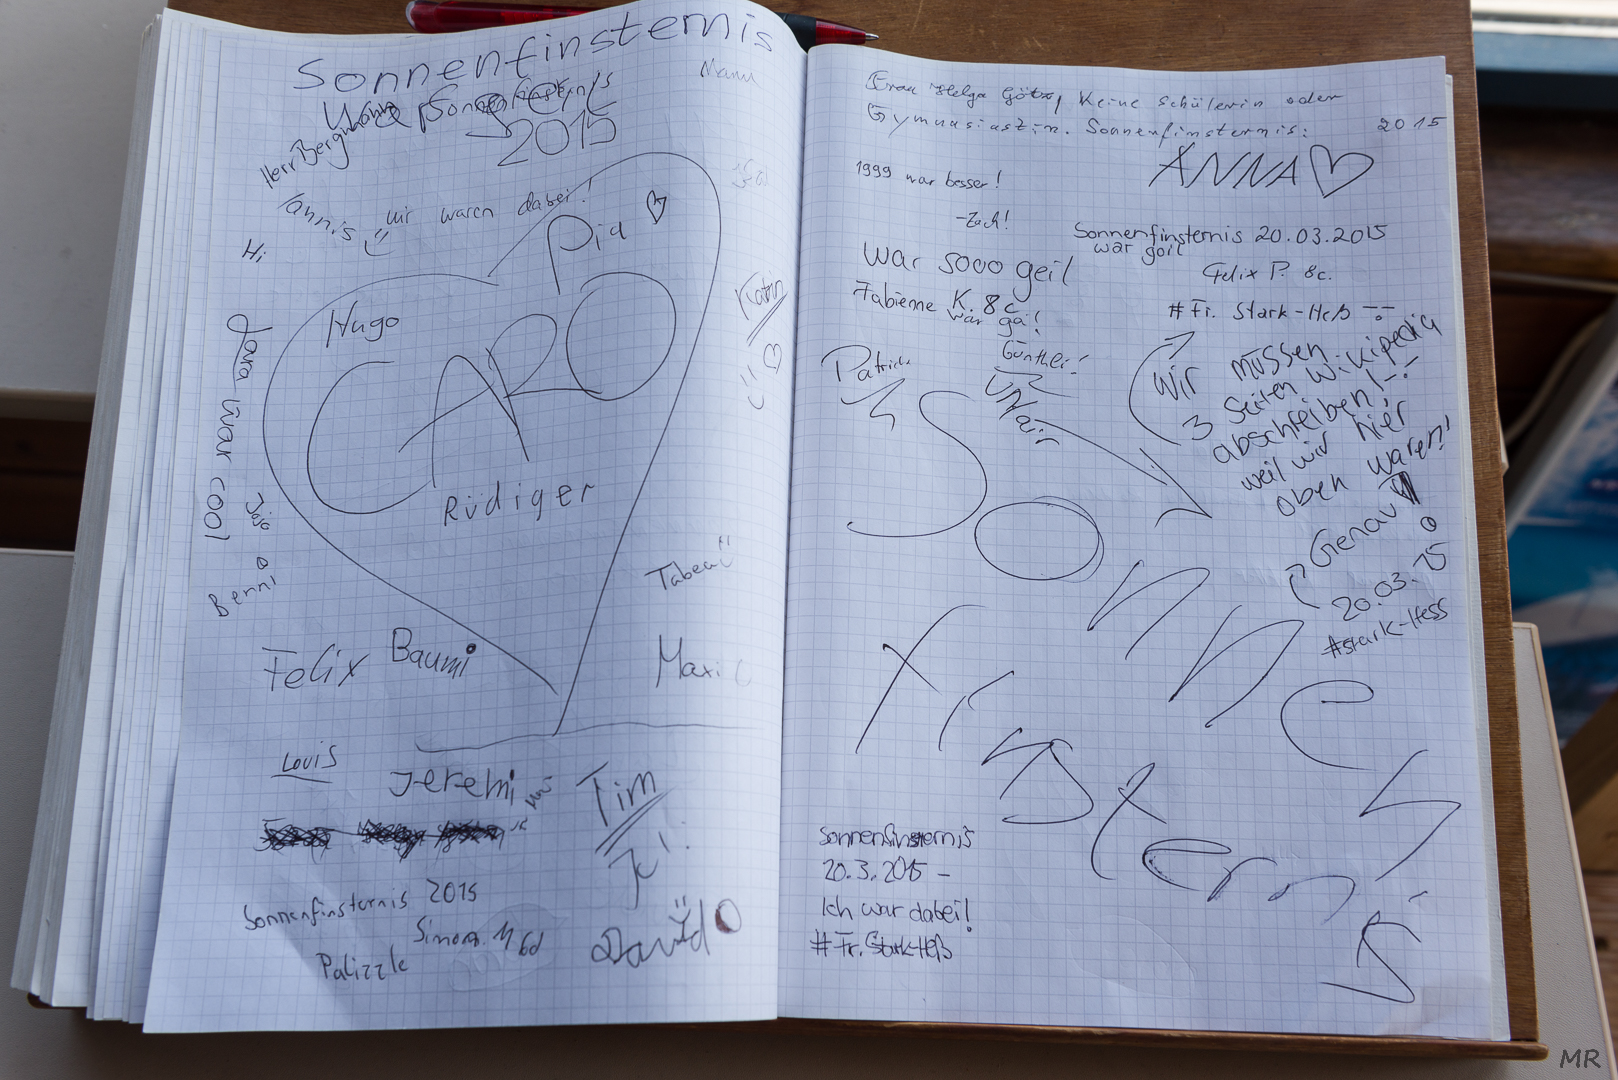 Sonnenfinsternis
Sonnenfinsternis
2015
Herr Bergmann
Mann
Tannis
wir waren dabei!
Hi
Pia
Hugo
CARO
Rüdiger
Katrin
Lara war cool
Jojo
Benni
Tabea
Felix
Baumi
Maxi
Louis
Jeremi
Tim
Sonnenfinsternis 2015
Simon M 6d
Palizzle
David
Frau Helga Götz, Keine Schülerin oder
Gymnasiastin. Sonnenfinsternis: 2015
ANNA
1999 war besser!
-Zach!
Sonnenfinsternis 20.03.2015
war goil
Felix P. 8c.
War sooo geil
Fabienne K. 8c
war gä!
#Fr. Stark-Heß
Patrick
Günther!
UNfair
Wir müssen
3 Seiten Wikipedia
abschreiben!
weil wir hier
oben waren!
Genau
20.03.15
#Stark-Hess
Sonne
finsternis
Sonnenfinsternis
20.3.2015 –
Ich war dabei!
#Fr. Stark-Heß
MR